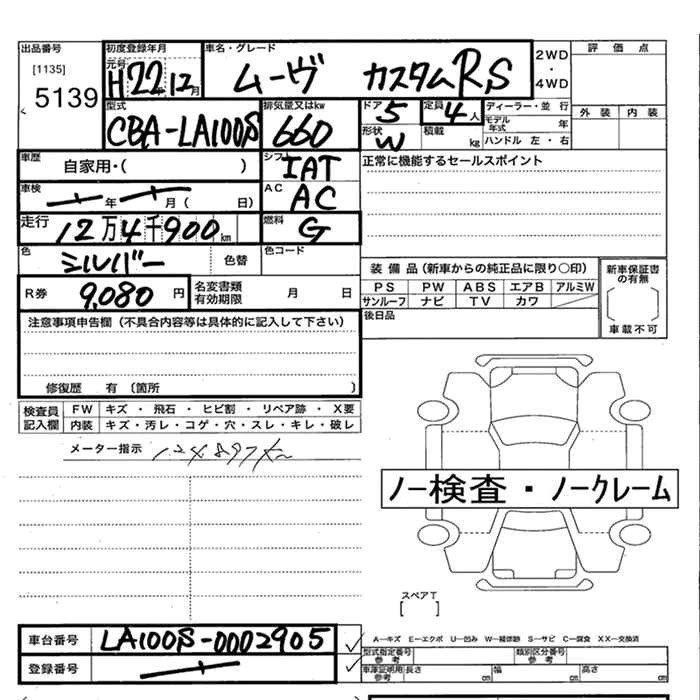 出品番号 初度登録年月 車名・グレード 評価点
[1135] 元号 H22年12月 ムーヴ カスタムRS 2WD・4WD
5139 外装 内装
型式 排気量又はkw ドア 形状 定員 積載 ディーラー・並行
CBA-LA100S 660 5 W 4人 kg モデル年式 年
ハンドル 左・右
車歴 自家用・( ) シフト IAT 正常に機能するセールスポイント
車検 年 月( 日) AC AC
走行 12万4千900km 燃料 G
色 シルバー 色替 色コード
装備品(新車からの純正品に限り○印) 新車保証書の有無
R券 9,080円 名変書類有効期限 月 日 PS PW ABS エアB アルミW
サンルーフ ナビ TV カワ 車載不可
注意事項申告欄(不具合内容等は具体的に記入して下さい) 後日品
修復歴 有〔箇所 〕
検査員記入欄 FW キズ・飛石・ヒビ割・リペア跡・X要
内装 キズ・汚レ・コゲ・穴・スレ・キレ・破レ
メーター指示 124897km
ノー検査・ノークレーム
スペアT
[ ]
車台番号 LA100S-0002905 A―キズ E―エクボ U―凹み W―補修跡 S―サビ C―腐食 XX―交換済
型式指定番号 参考 類別区分番号 参考
登録番号 車庫証明用 参考 長さ cm 幅 cm 高さ cm